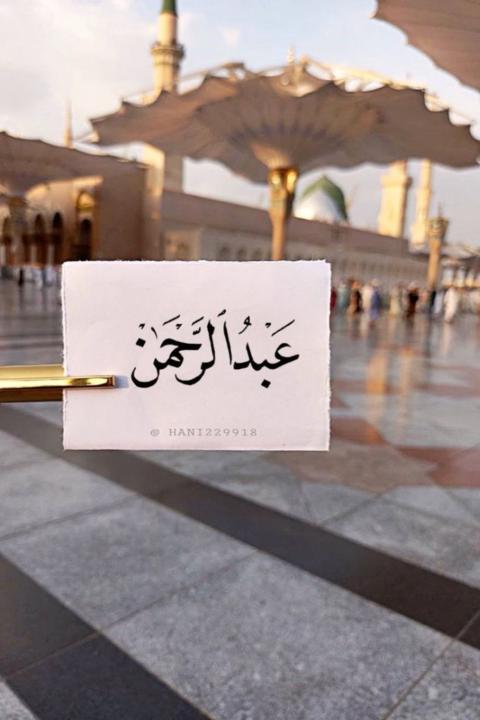 عَبْدُالرَّحْمٰنْ
@ HANI229918